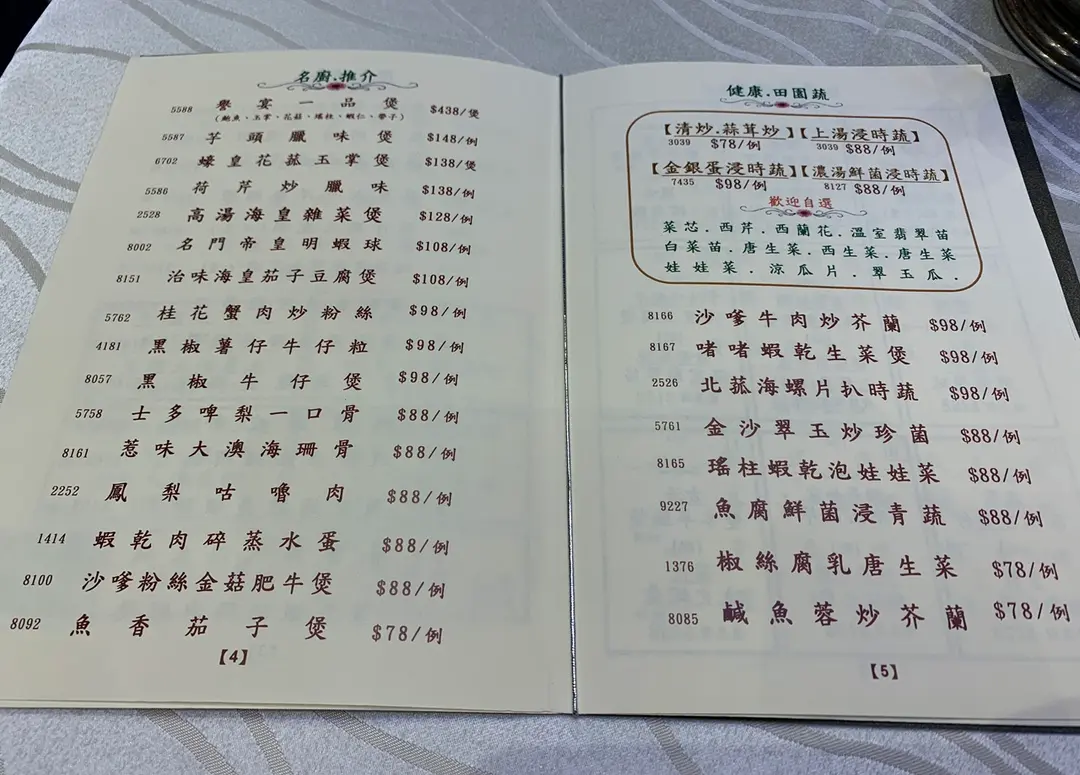 名廚.推介
5588 譽宴一品煲 $438/煲
(鮑魚、玉掌、花菇、瑤柱、蝦仁、帶子)
5587 芋頭臘味煲 $148/例
6702 蠔皇花菰玉掌煲 $138/煲
5586 荷芹炒臘味 $138/例
2528 高湯海皇雜菜煲 $128/例
8002 名門帝皇明蝦球 $108/例
8151 治味海皇茄子豆腐煲 $108/例
5762 桂花蟹肉炒粉絲 $98/例
4181 黑椒薯仔牛仔粒 $98/例
8057 黑椒牛仔煲 $98/例
5758 士多啤梨一口骨 $88/例
8161 惹味大澳海珊骨 $88/例
2252 鳳梨咕嚕肉 $88/例
1414 蝦乾肉碎蒸水蛋 $88/例
8100 沙嗲粉絲金菇肥牛煲 $88/例
8092 魚香茄子煲 $78/例
【4】
健康.田園蔬
【清炒.蒜茸炒】【上湯浸時蔬】
3039 $78/例 3039 $88/例
【金銀蛋浸時蔬】【濃湯鮮菌浸時蔬】
7435 $98/例 8127 $88/例
歡迎自選
菜芯.西芹.西蘭花.溫室翡翠苗
白菜苗.唐生菜.西生菜.唐生菜
娃娃菜.涼瓜片.翠玉瓜.
8166 沙嗲牛肉炒芥蘭 $98/例
8167 啫啫蝦乾生菜煲 $98/例
2526 北菰海螺片扒時蔬 $98/例
5761 金沙翠玉炒珍菌 $88/例
8165 瑤柱蝦乾泡娃娃菜 $88/例
9227 魚腐鮮菌浸青蔬 $88/例
1376 椒絲腐乳唐生菜 $78/例
8085 鹹魚蓉炒芥蘭 $78/例
【5】